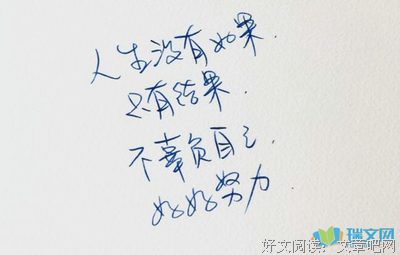 人生没有如果.
只有结果.
不辜负自己.
好好努力
瑞文网
好文阅读：文章吧网